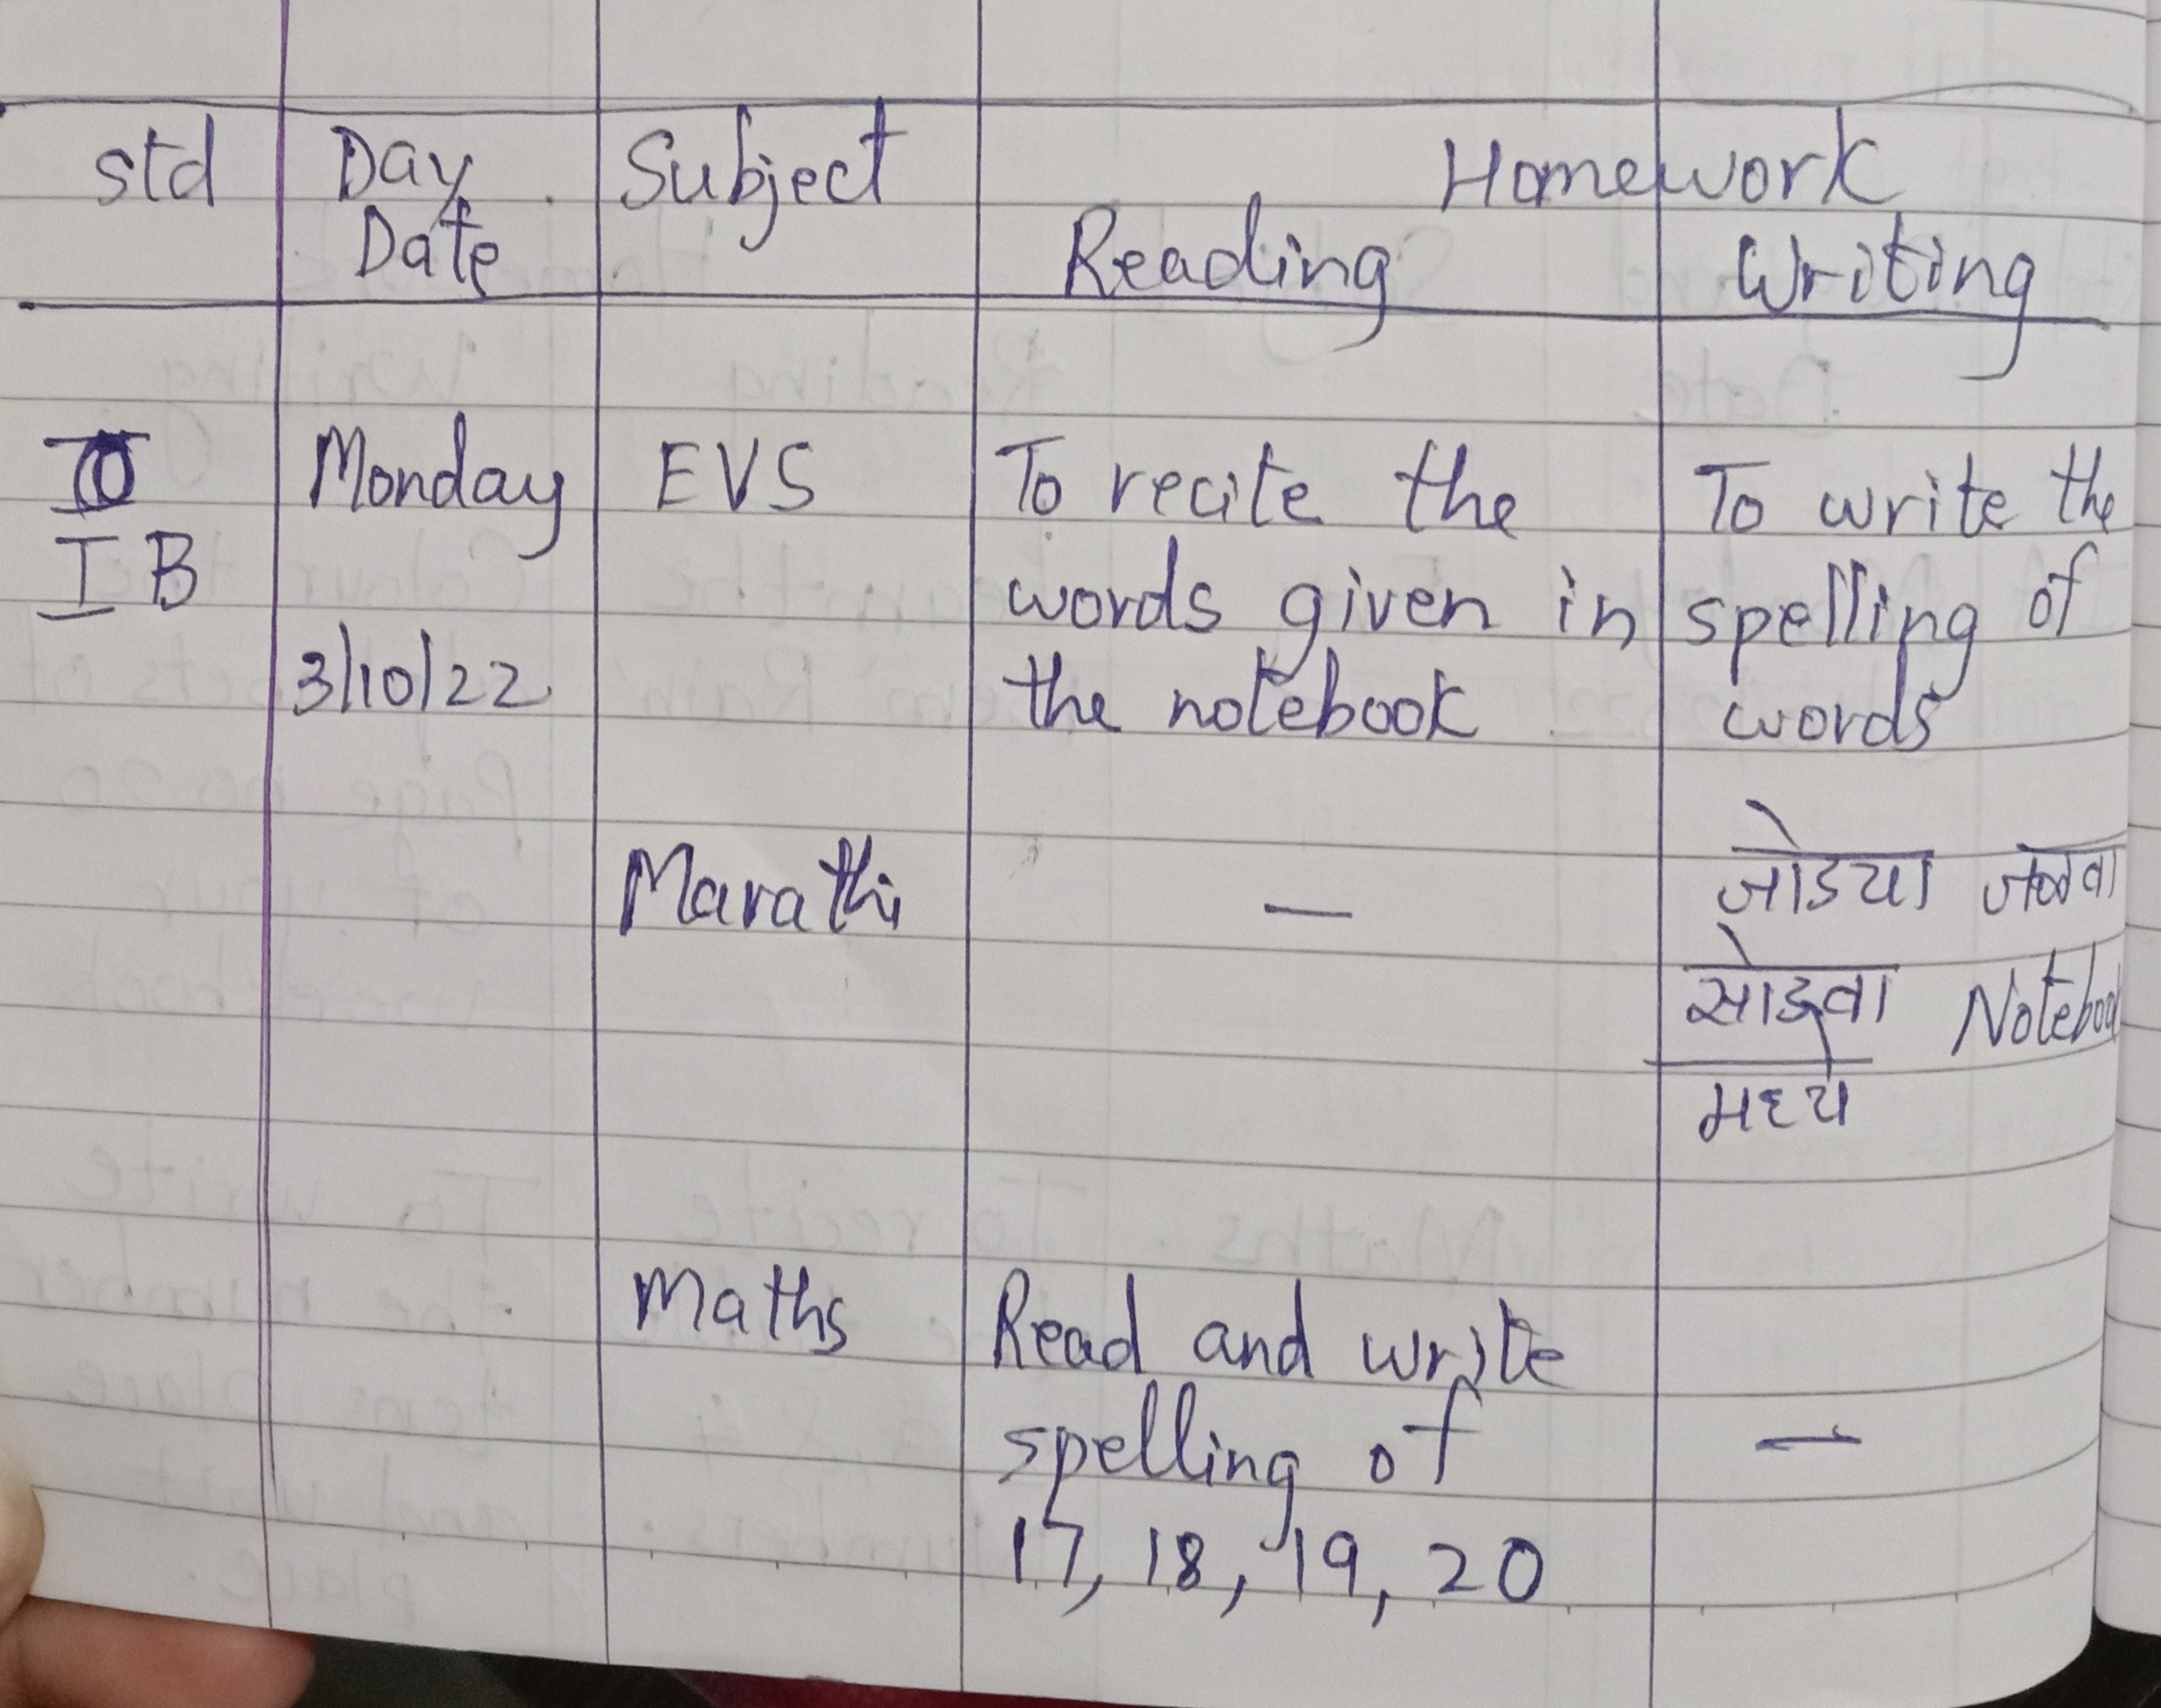 std Day Subject Homework
Date Reading Writing
Monday EVS To recite the To write the
I B words given in spelling of
3/10/22 the notebook words
Marathi — जोडया जळवा
सोडवा Notebook
मध्ये
Maths Read and write
spelling of —
17, 18, 19, 20